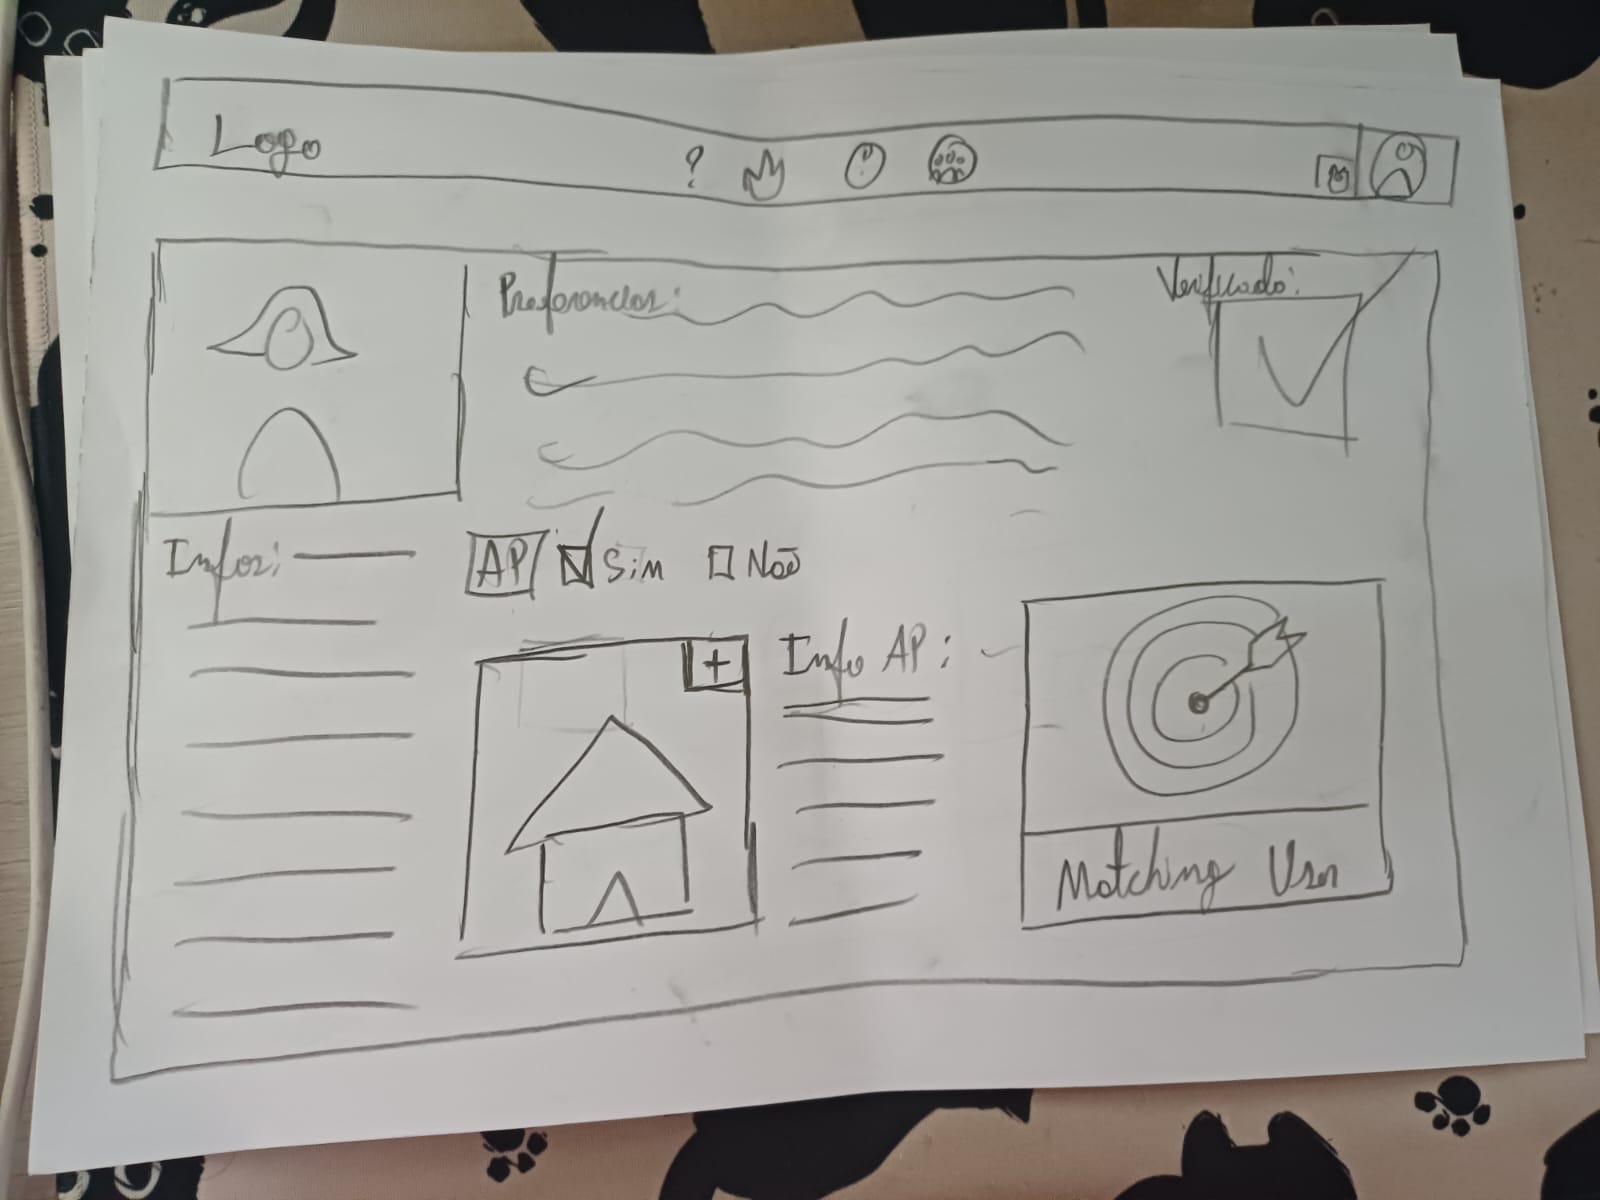 Logo
?
Preferencias:
Verificado:
Infos:
AP Sim Não
+
Info AP:
Matching User